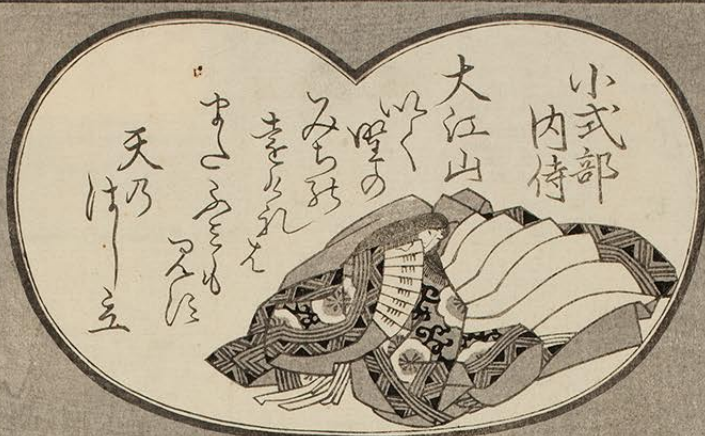 小式部
内侍
大江山
いく
野の
みち能
遠介れは
またふミも
み須
天乃
はし立